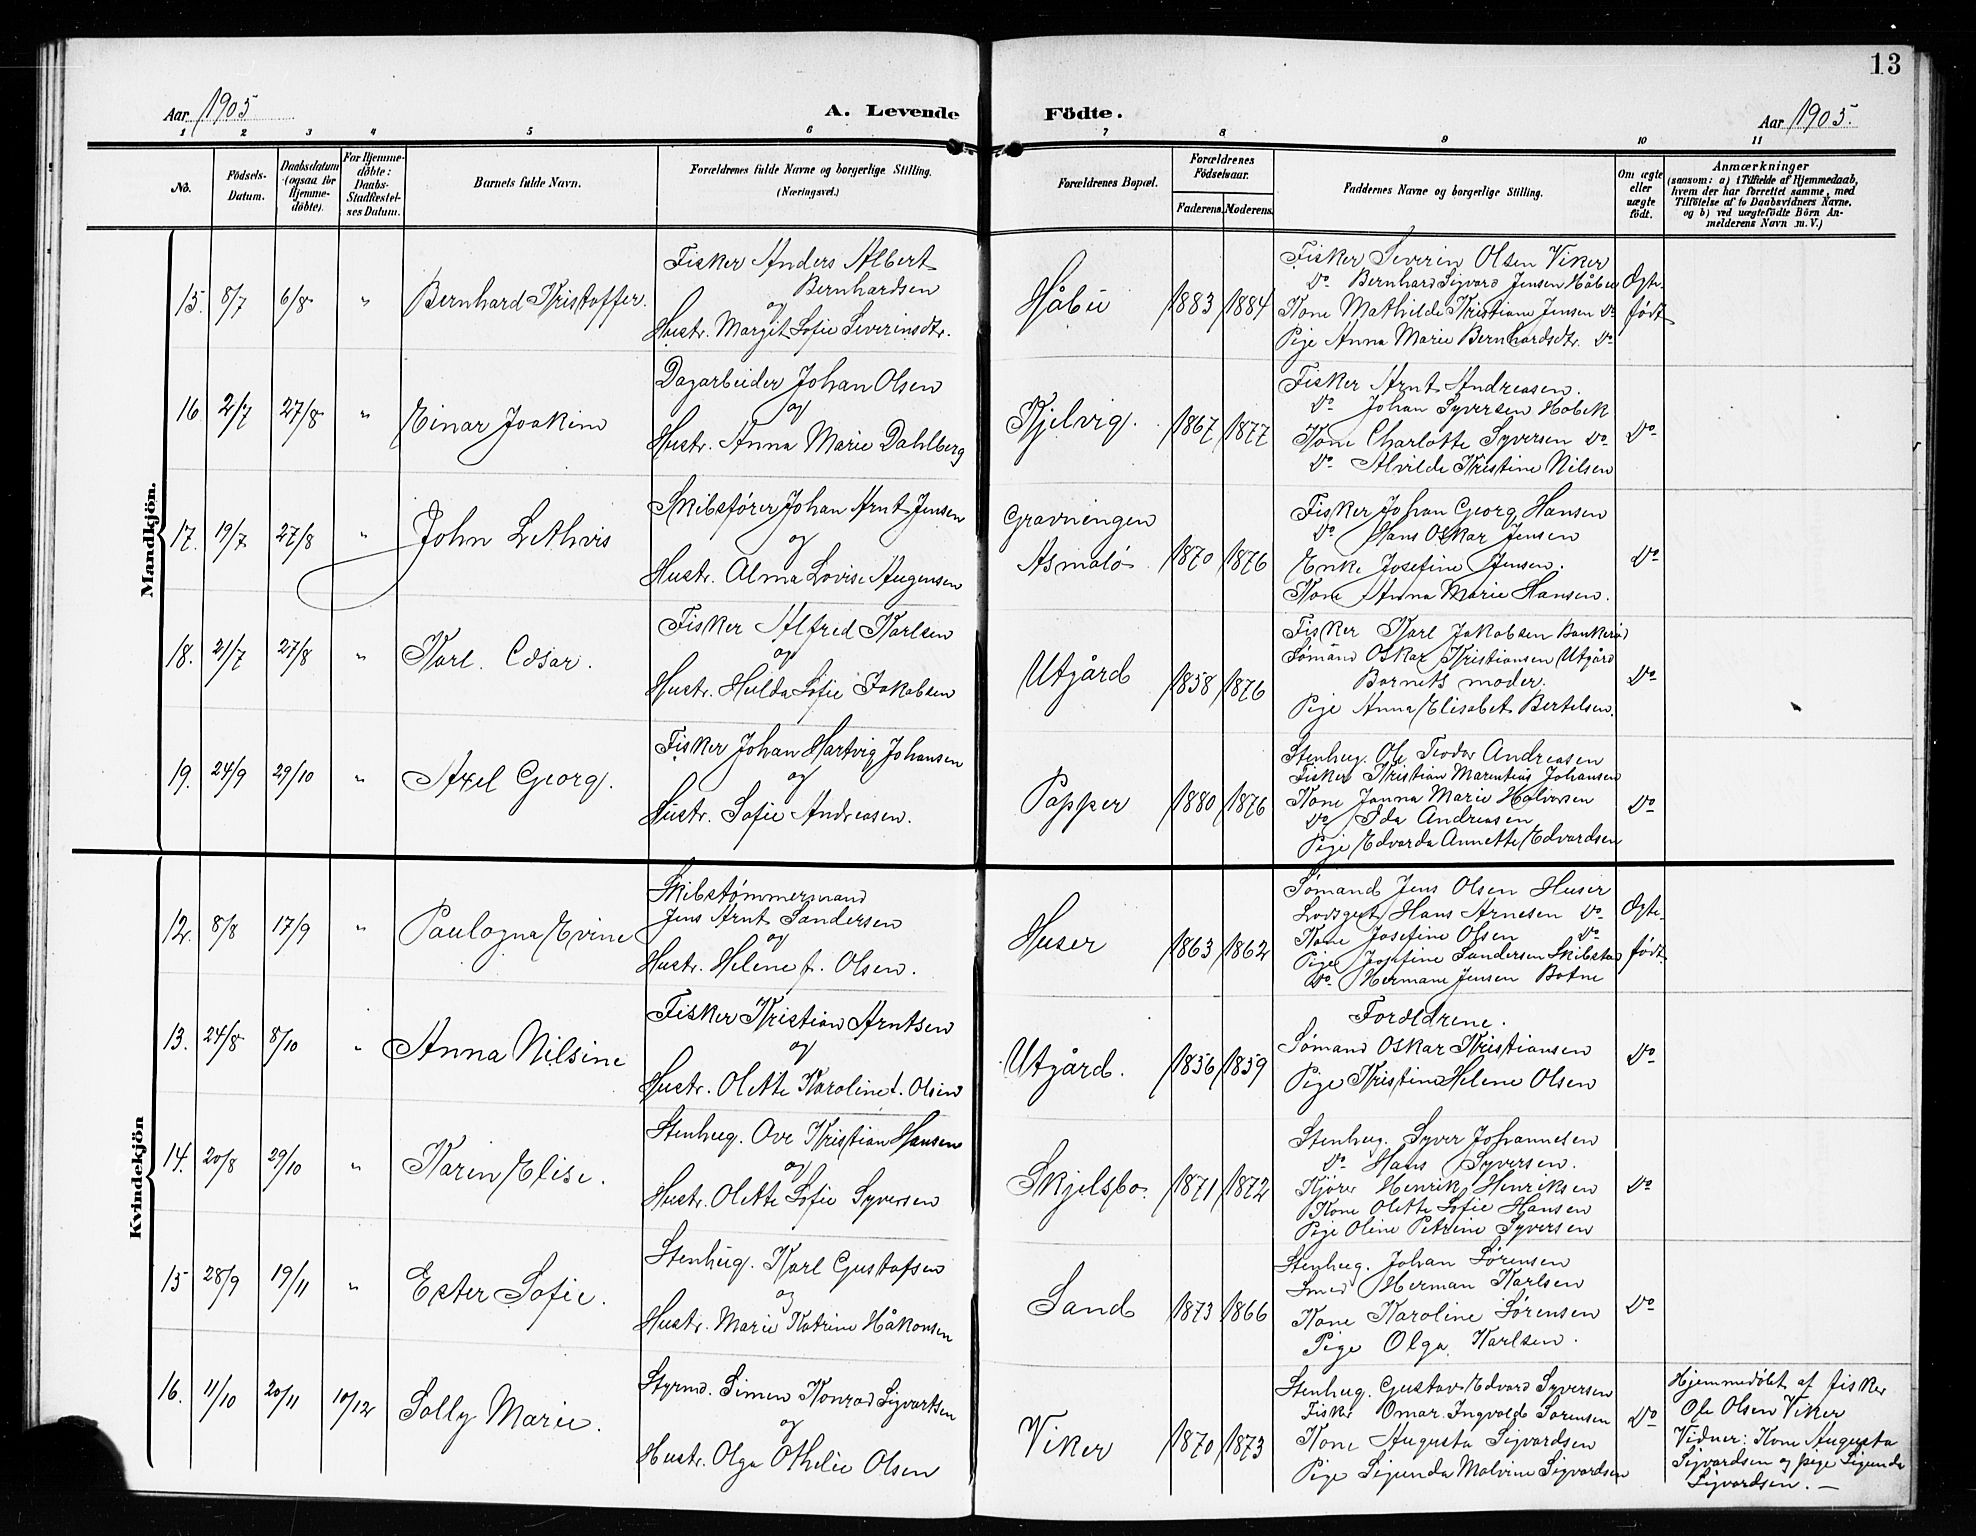 13
Aar 1905
A. Levende Födte.
Aar 1905.
1 2 3 4 5 6 7 8 9 10 11
No.
Födsels-
Datum.
Daabsdatum
(ogsaa for
Hjemme-
döbte).
For Hjemme-
döbte:
Daabs-
Stadfæstel-
ses Datum.
Barnets fulde Navn.
Forældrenes fulde Navne og borgerlige Stilling.
(Næringsvei.)
Forældrenes Bopæl.
Forældrenes
Födselsaar.
Faderens. Moderens.
Faddernes Navne og borgerlige Stilling.
Om ægte
eller
uægte
födt.
Anmærkninger
(saasom: a) i Tilfælde af Hjemmedaab,
hvem der har forrettet samme, med
Tilföielse af to Daabsvidners Navne,
og b) ved uægtefödte Börn An-
melderens Navn m. V.)
Mandkjön.
15. 8/7 6/8 " Bernhard Kristoffer.
Fisker Anders Albert
Bernhardsen
og
Hustr. Margit Sofie Severinsdtr.
Håbu 1883 1884
Fisker Severin Olsen Viker
Do Bernhard Sigvard Jensen Håbu
Kone Mathilde Kristiane Jensen Do
Pige Anna Marie Bernhardsdtr. Do
Ægte.
født
16 2/7 27/8 " Einar Joakim
Dagarbeider Johan Olsen
og
Hustr. Anna Marie Dahlberg
Kjelvig. 1867 1877
Fisker Arnt Andreasen.
Do Johan Syversen Hobek
Kone Charlotte Syversen Do
Do Alvilde Kristine Nilsen
Do
17. 19/7 27/8 " John
Skibsfører Johan Arnt Jensen
og
Hustr. Alma Lovise Augensen
Gravningen
Asmalö 1870 1876
Fisker Johan Georg Hansen
Do Hans Oskar Jensen
Enke Josefine Jensen.
Kone Anna Marie Hansen.
Do
18. 21/7 27/8 " Karl. Cæsar.
Fisker Alfred Karlsen
og
Hustr. Hulda Sofie Jakobsen
Utgård 1858 1876
Fisker Karl Jakobsen Bankerød
Sømand Oskar Kristiansen Utgård
Barnets moder.
Pige Anna Elisabet Bertelsen.
Do
19. 24/9 29/10 " Axel Georg.
Fisker Johan Hartvig Johansen
og
Hustr. Sofie Andreasen.
Papper 1880 1876
Stenhug. Ole Teodor Andreasen
Fisker Kristian Marentius Johansen
Kone Janna Marie Halvorsen
Do Ida Andreasen
Pige Edvarda Annette Edvardsen
Do
Kvindekjön
12. 8/8 17/9 " Paulogna Evine
Skibstømmermand
Jens Arnt Sandersen
og
Hustr. Helene f. Olsen.
Huser 1863 1862
Sømand Jens Olsen Huser
Lodsgut Hans Arnesen Do
Kone Josefine Olsen Do
Pige Josefine Sandersen Skibstad
Do Hermane Jensen Botne
Ægte.
født.
13. 24/8 8/10 " Anna Nilsine
Fisker Kristian Arntsen
og
Hustr. Olette Karoline f. Olsen
Utgård. 1856 1859
Forældrene.
Sømand Oskar Kristiansen
Pige Kristine Helene Olsen
Do
14. 20/8 29/10 " Karin Elise.
Stenhug. Ove Kristian Hansen
og
Hustr. Olette Sofie Syversen
Skjelsbo. 1871 1872
Stenhug. Syver Johannesen
Do Hans Syversen.
Kjører Henrik Henriksen
Kone Olette Sofie Hansen
Pige Oline Petrine Syversen
Do
15 28/9 19/11 " Ester Sofie.
Stenhug. Karl Gustafsen
og
Hustr. Marie Katrine Håkonsen
Sand 1873 1866
Stenhug. Johan Sørensen
Smed Herman Karlsen
Kone Karoline Sørensen
Pige Olga Karlsen.
Do
16. 11/10 20/11 10/12 Solly Marie.
Styrmd. Simen Konrad Sigvartsen
og
Hustr. Olga Othelie Olsen
Viker 1870 1873
Stenhug. Gustav Edvard Syversen
Fisker Omar. Ingvald Sørensen
Kone Augusta Sigvardsen
Pige Sigunda Malvine Sigvardsen
Do
Hjemmedøbt af fisker
Ole Olsen Viker
Vidner: Kone Augusta
Sigvardsen og pige Sigunda
Sigvardsen. —